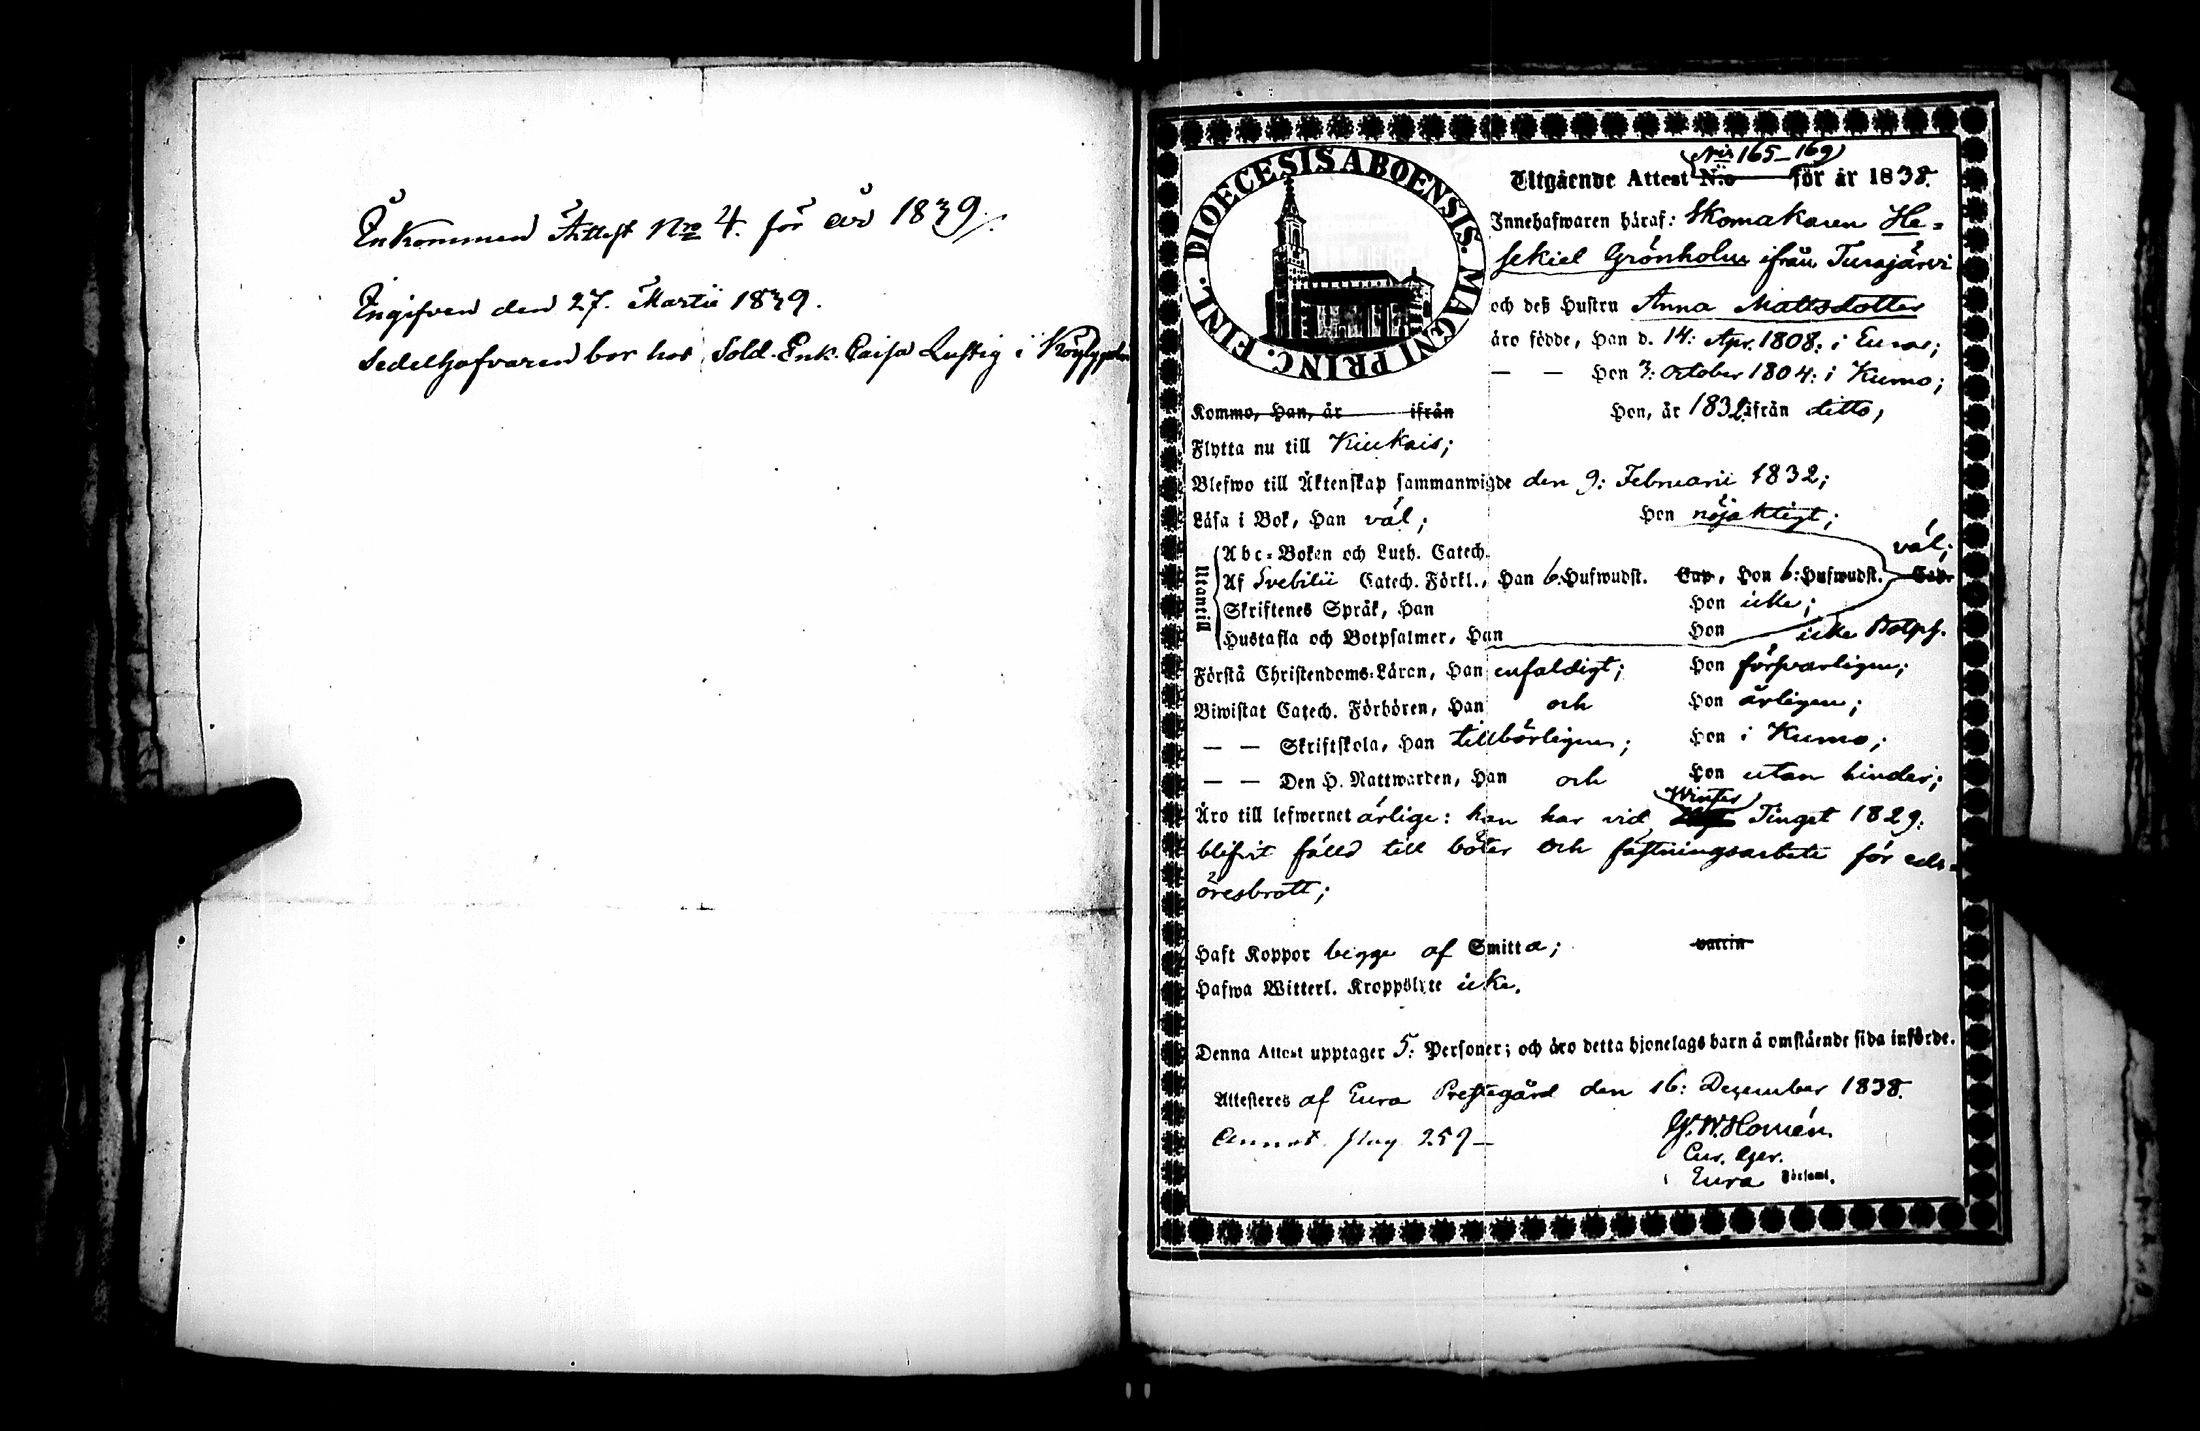 Inkommen Attest Nro 4. för år 1839.
Ingifven den 27. Martii 1839.
Sedelhafvaren bor hos Sold. Enk. Caisa Lustig i
DIOECESIS ABOENSIS. MAGNI PRINC. FINL.
Nris 165–169
Utgående Attest N:o för år 1838.
Innehafwaren häraf: Skomakaren He-
sekiel Grönholm ifrån Turajärvi
och deß Hustru Anna Mattsdotter
äro födde, Han d. 14: Apr. 1808: i Eura;
— — Hon 3: October 1804: i Kumo;
Kommo, Han, år ifrån Hon, år 1832 ifrån ditto;
Flytta nu till Kiukais;
Blefwo till Äktenskap sammanwigde den 9: Februarii 1832;
Läsa i Bok, Han väl; Hon nöjaktigt;
Utantill
Abc-Boken och Luth. Catech. väl;
Af Svebilii Catech. Förkl., Han 6: Hufwudst. Cap, Hon 6: Hufwudst. Cap.
Skriftenes Språk, Han Hon icke;
Hustafla och Botpsalmer, Han Hon icke Botps.
Förstå Christendoms-Läran, Han enfaldigt; Hon försvarligen;
Biwistat Catech. Förhören, Han och Hon årligen;
— — Skriftskola, Han tillbörligen; Hon i Kumo;
— — Den H. Nattwarden, Han och Hon utan hinder;
Äro till lefwernet ärlige: han har vid Winter Tinget 1829:
blifvit fälld till böter och fästningsarbete för eds-
öresbrott;
Haft Koppor begge af Smitta; vaccin
Hafwa Witterl. Kroppslyte icke.
Denna Attest upptager 5: Personer; och äro detta hjonelags barn å omstående sida införde.
Attesteres af Eura Prestegård den 16: December 1838.
Annot. pag. 259 — G. W. Homén
Cur. Ager.
i Eura Församl.